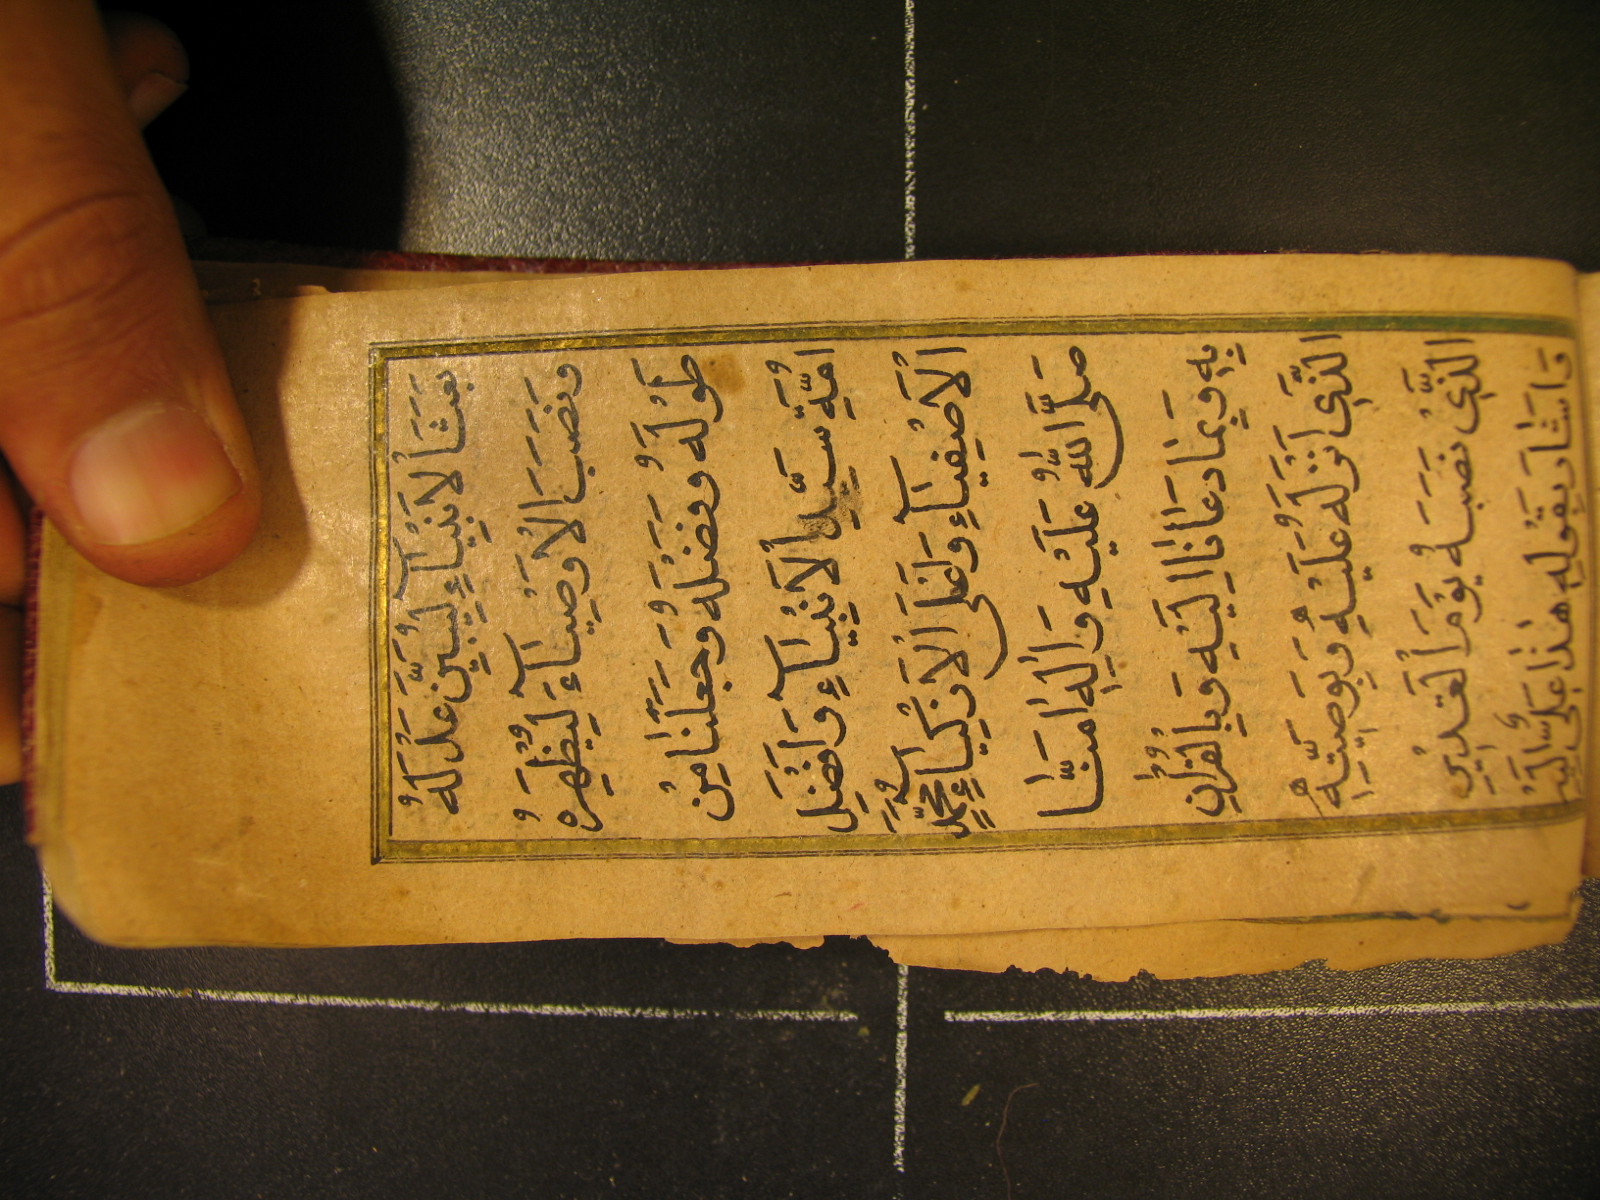 بَعَثَ الْاَنْبِيٰٓاءِ لِيُبَيِّنَ عَدْلَهُ
وَنَصَبَ الْاَوْصِيٰٓاءَ لِيُظْهِرَ
طَوْلَهُ وَفَضْلَهُ وَجَعَلَنَا مِنْ
اُمَّةِ سَيِّدِ الْاَنْبِيٰٓاءِ وَاَفْضَلِ
الْاَصْفِيٰٓاءِ وَاَعْلَى الْاَزْكِيٰٓاءِ مُحَمَّدٍ
صَلَّى اللّٰهُ عَلَيْهِ وَاٰلِهِ اٰمَنَّا
بِهِ وَبِمَا دَعَانَا اِلَيْهِ وَبِالْقُرْاٰنِ
الَّذِى اَنْزَلَهُ عَلَيْهِ وَبِوَصِيِّهِ
الَّذِى نَصَبَهُ يَوْمَ الْغَدِيْرِ
وَاَشَارَ بِقَوْلِهِ هٰذَا عَلِىٌّ اِلَيْهِ